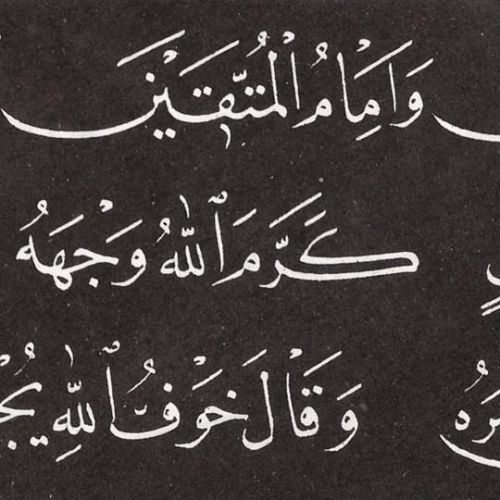 وَاِمَامُ الْمُتَّقِيْنَ
كَرَّمَ ٱللّٰهُ وَجْهَهُ
وَقَالَ خَوْفُ ٱللّٰهِ